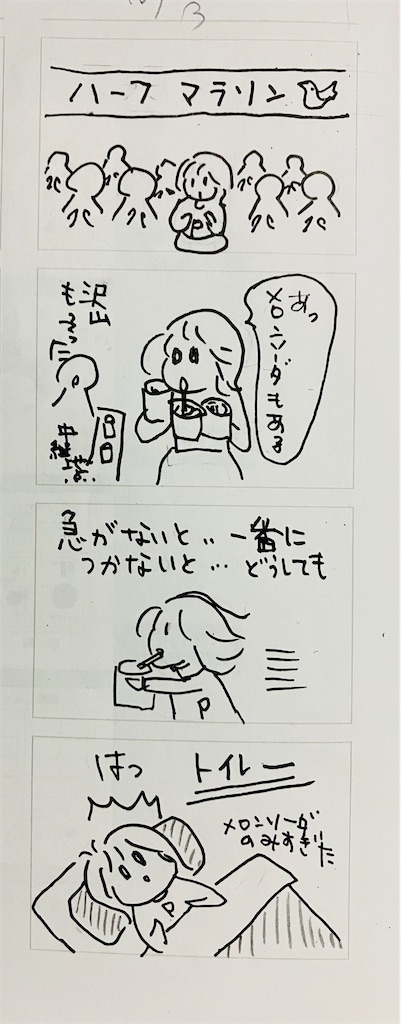 3
ハーフ マラソン
P
あっ
メロンソーダもある
沢山
もらった
中継地点
急がないと‥一番に
つかないと…どうしても
P
はっ
トイレー
メロンソーダ
のみすぎた
P